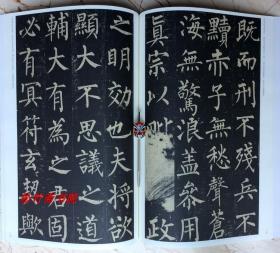 既而刑不殘兵不
黷赤子無愁聲蒼
海無驚浪蓋參用
眞宗以毗政
之明効也夫將欲
顯大不思議之道
輔大有為之君固
必有冥符玄契歟